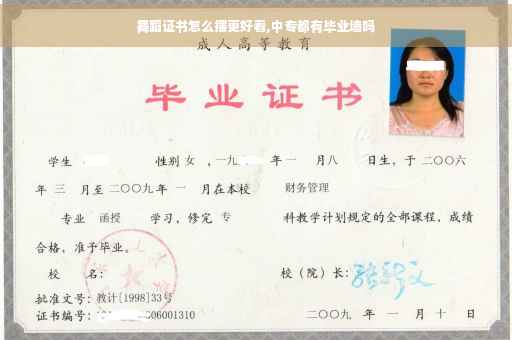 舞蹈证书怎么摆更好看,中专都有毕业墙吗
成人高等教育
毕业证书
学生 性别 女 ,一九 年 一 月八 日生,于二〇〇六
年 三 月至二〇〇九年 一 月在本校 财务管理
专业 函授 学习,修完 专 科教学计划规定的全部课程,成绩
合格,准予毕业。
校 名: 校(院)长:
批准文号:教计[1998]33号
证书编号: 06001310 二〇〇九 年 一 月 十 日